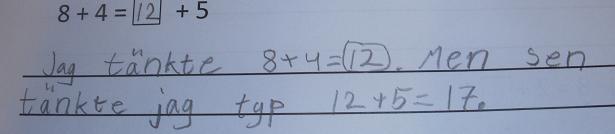 8 + 4 = 12 + 5
Jag tänkte 8+4=12. Men sen
tänkte jag typ 12+5=17.